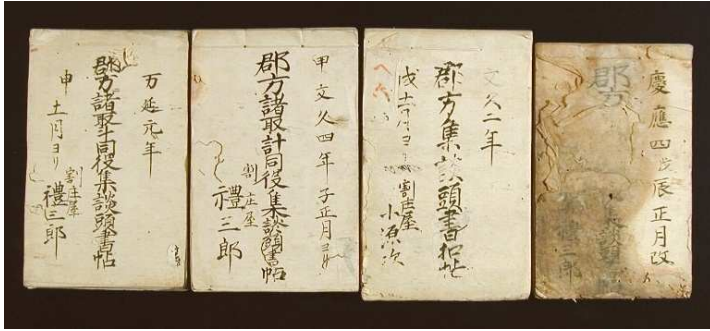 慶應四戊辰正月改
郡方
文久二年
郡方集談頭書扣帖
戌十一月ヨリ
割庄屋
小源次
甲文久四年子正月ヨリ
郡方諸取計同役集談頭書帖
割庄屋
禮三郎
万延元年
郡方諸取斗同役集談頭書帖
申十一月ヨリ
割庄屋
禮三郎